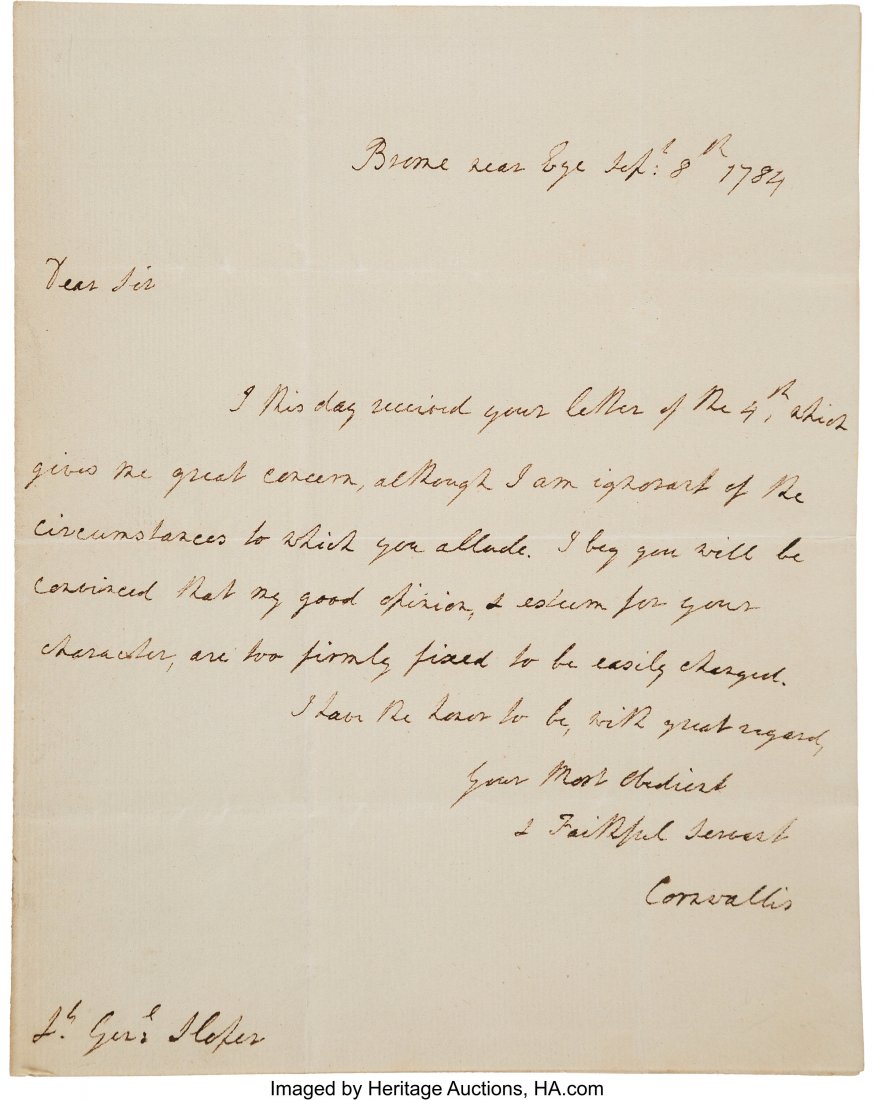 Brome near Eye Sept: 8th 1784
Dear Sir
I this day received your letter of the 4th, which
gives me great concern, although I am ignorant of the
circumstances to which you allude. I beg you will be
convinced that my good opinion, & esteem for your
character, are too firmly fixed to be easily changed.
I have the honor to be, with great regard,
Your Most Obedient
& Faithful Servant
Cornwallis
Genl:
Imaged by Heritage Auctions, HA.com